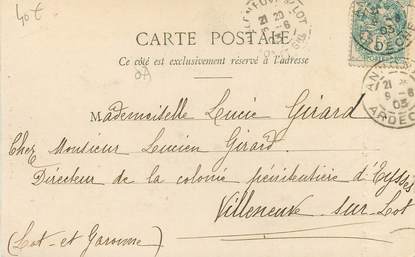 40t
CARTE POSTALE
Ce côté est exclusivement réservé à l'adresse
Mademoiselle Lucie Girard
Chez Monsieur Lucien Girard.
Directeur de la colonie pénitentiaire d'Eysses
Villeneuve sur Lot
(Lot-et Garonne)
21
9-6
03
ARDECHE